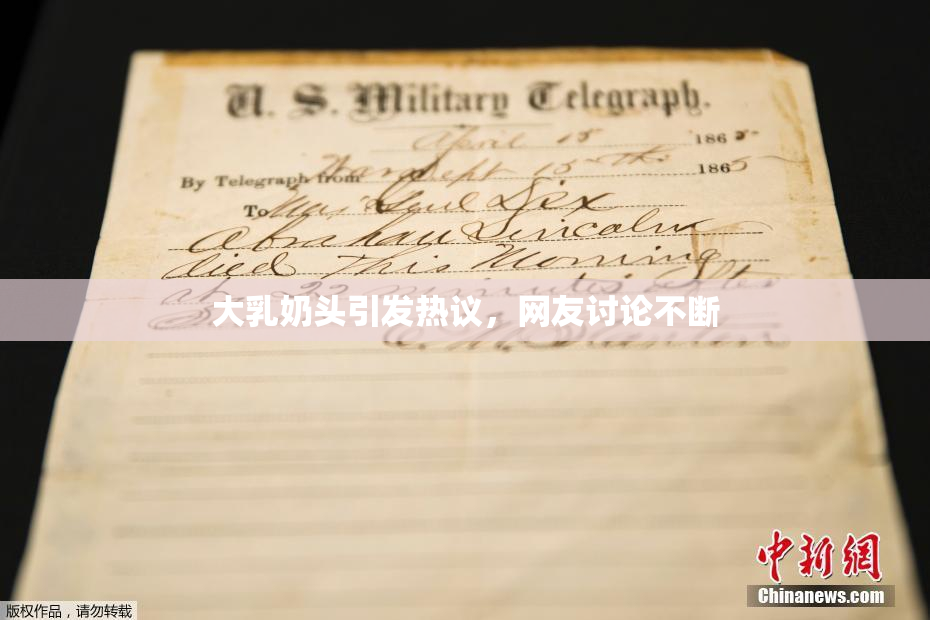 U. S. Military Telegraph.
April 15 1865
By Telegraph from War Dept 15th 1865
To Maj Genl Dix
Abraham Lincoln
died This Morning
at 22 minutes after
大乳奶头引发热议，网友讨论不断
E. M. Stanton
中新网
Chinanews.com
版权作品，请勿转载